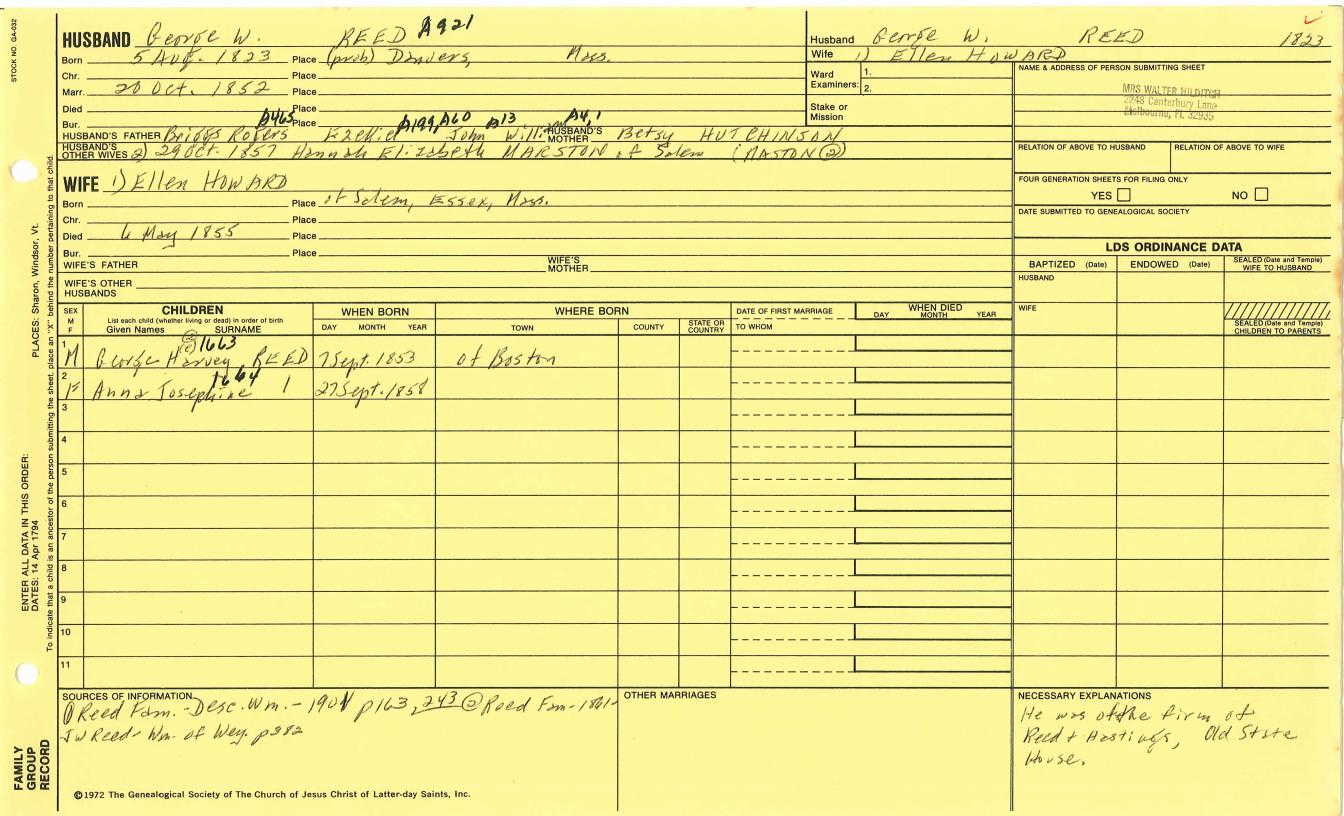 STOCK NO. GA-032
PLACES: Sharon, Windsor, Vt.
ENTER ALL DATA IN THIS ORDER:
DATES: 14 Apr 1794
To indicate that a child is an ancestor of the person submitting the sheet, place an "X" behind the number pertaining to that child.
FAMILY GROUP RECORD
HUSBAND George W. REED A921
Born 5 Aug. 1823 Place (prob) Danvers, Mass.
Chr. Place
Marr. 20 Oct. 1852 Place
Died Place
Bur. Place
A465 A199, A60 A13 A4,1
HUSBAND'S FATHER Briggs Rogers Ezekiel John William HUSBAND'S MOTHER Betsy HUTCHINSON
HUSBAND'S OTHER WIVES 2) 29 Oct. 1857 Hannah Elizabeth MARSTON of Salem (MASTON ②)
WIFE 1) Ellen HOWARD
Born Place of Salem, Essex, Mass.
Chr. Place
Died 6 May 1855 Place
Bur. Place
WIFE'S FATHER WIFE'S MOTHER
WIFE'S OTHER HUSBANDS
Husband George W. REED 1823
Wife 1) Ellen HOWARD
Ward Examiners: 1.
2.
Stake or Mission
NAME & ADDRESS OF PERSON SUBMITTING SHEET
MRS WALTER HILDITCH
2243 Canterbury Lane
Melbourne, FL 32935
RELATION OF ABOVE TO HUSBAND RELATION OF ABOVE TO WIFE
FOUR GENERATION SHEETS FOR FILING ONLY
YES NO
DATE SUBMITTED TO GENEALOGICAL SOCIETY
LDS ORDINANCE DATA
BAPTIZED (Date) ENDOWED (Date) SEALED (Date and Temple) WIFE TO HUSBAND
HUSBAND
WIFE
SEALED (Date and Temple) CHILDREN TO PARENTS
SEX M F CHILDREN WHEN BORN WHERE BORN DATE OF FIRST MARRIAGE WHEN DIED
List each child (whether living or dead) in order of birth
Given Names SURNAME DAY MONTH YEAR TOWN COUNTY STATE OR COUNTRY TO WHOM DAY MONTH YEAR
1663
1 M George Harvey REED 7 Sept. 1853 of Boston
1664
2 F Anna Josephine 27 Sept. 1858
3
4
5
6
7
8
9
10
11
SOURCES OF INFORMATION
① Reed Fam. - Desc. Wm. - 1901 p163, 243 ② Reed Fam - 1861-
JW Reed - Wm. of Wey. p382
OTHER MARRIAGES
NECESSARY EXPLANATIONS
He was of the firm of
Reed + Hastings, Old State
House.
©1972 The Genealogical Society of The Church of Jesus Christ of Latter-day Saints, Inc.